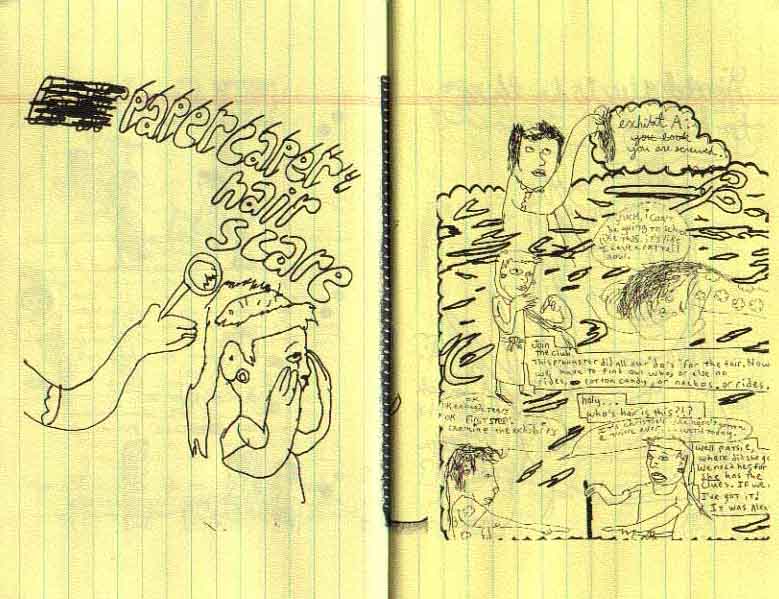 papercaper"
hair
scare
exhibit A:
you look
you are screwed.
yuck, i can't
be going to school
like this. it's like
I have a rat tail
now.
Join
the club.
This prankster did all our "do's" for the fair. Now
we have to find out who, or else no
rides, cotton candy, or nachos, or rides.
holy...
who's hair is this?!?
OK
OK FIRST STEP:
examine the exhibits
well patsie,
where did she go
We need her for
She has the
clues. If we
I've got it!
It was Alex